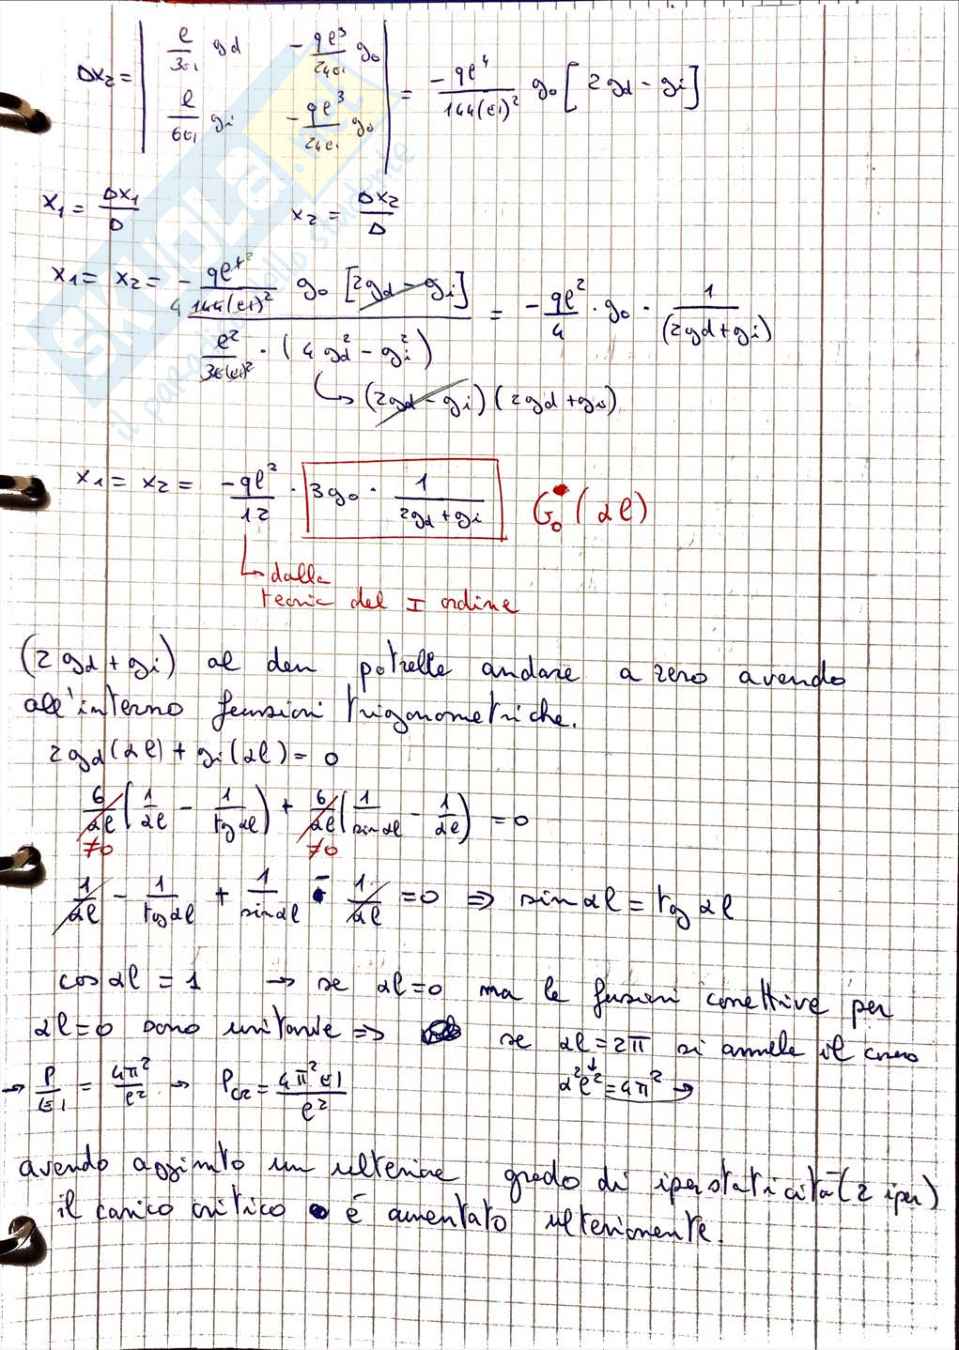 Δx₂ = | ℓ/3EI gd   - qℓ³/24EI g₀ |
| ℓ/6EI gi   - qℓ³/24EI g₀ | = - qℓ⁴/144(EI)² g₀ [2gd - gi]
x₁ = Δx₁/Δ   x₂ = Δx₂/Δ
x₁ = x₂ = - qℓ⁴/144(EI)² g₀ [2gd - gi] / ℓ²/36(EI)² · (4gd² - gi²) = - qℓ²/4 · g₀ · 1/(2gd + gi)
↳ (2gd - gi)(2gd + gi)
x₁ = x₂ = - qℓ²/12 · 3g₀ · 1/2gd + gi   G₀(αℓ)
↳ dalla
teoria del I ordine
(2gd + gi) al den potrebbe andare a zero avendo
all'interno funzioni trigonometriche.
2gd(αℓ) + gi(αℓ) = 0
6/αℓ (1/αℓ - 1/tgαℓ) + 6/αℓ (1/sinαℓ - 1/αℓ) = 0
≠0   ≠0
1/αℓ - 1/tgαℓ + 1/sinαℓ - 1/αℓ = 0 ⇒ sinαℓ = tgαℓ
cosαℓ = 1 → se αℓ=0 ma le funzioni correttive per
αℓ=0 sono unitarie ⇒ se αℓ = 2π si annulla il coseno
→ P/EI = 4π²/ℓ² → Pcr = 4π²EI/ℓ²   α²ℓ² = 4π² →
avendo aggiunto un ulteriore grado di iperstaticità (2 iper)
il carico critico é aumentato ulteriormente.
SKUOLA.net
il paradiso dello studente